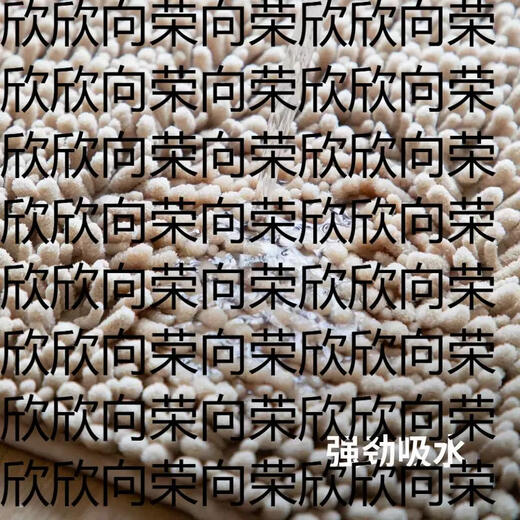 欣欣向荣向荣欣欣向荣
欣欣向荣向荣欣欣向荣
欣欣向荣向荣欣欣向荣
欣欣向荣向荣欣欣向荣
欣欣向荣向荣欣欣向荣
欣欣向荣向荣欣欣向荣
欣欣向荣向荣欣欣向荣
强劲吸水
欣欣向荣向荣欣欣向荣